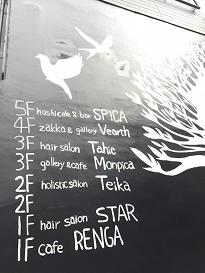 5F hoshi cafe & bar SPICA
4F zakka & gallery Vearth
3F hair salon Tahic
3F gallery & cafe Monpica
2F holistic salon Teika
2F
1F hair salon STAR
1F cafe RENGA